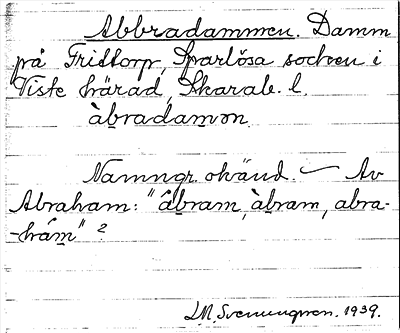 Abbradammen. Damm
på Fridtorp, Sparlösa socken i
Viste härad, Skarab. l.
àb̲radam̲ən.
Namngr. okänd. — Av
Abraham: "âb̲ram, àb̲ram, abra-
-hâm̲" ?
L.M. Svenungsson. 1939.